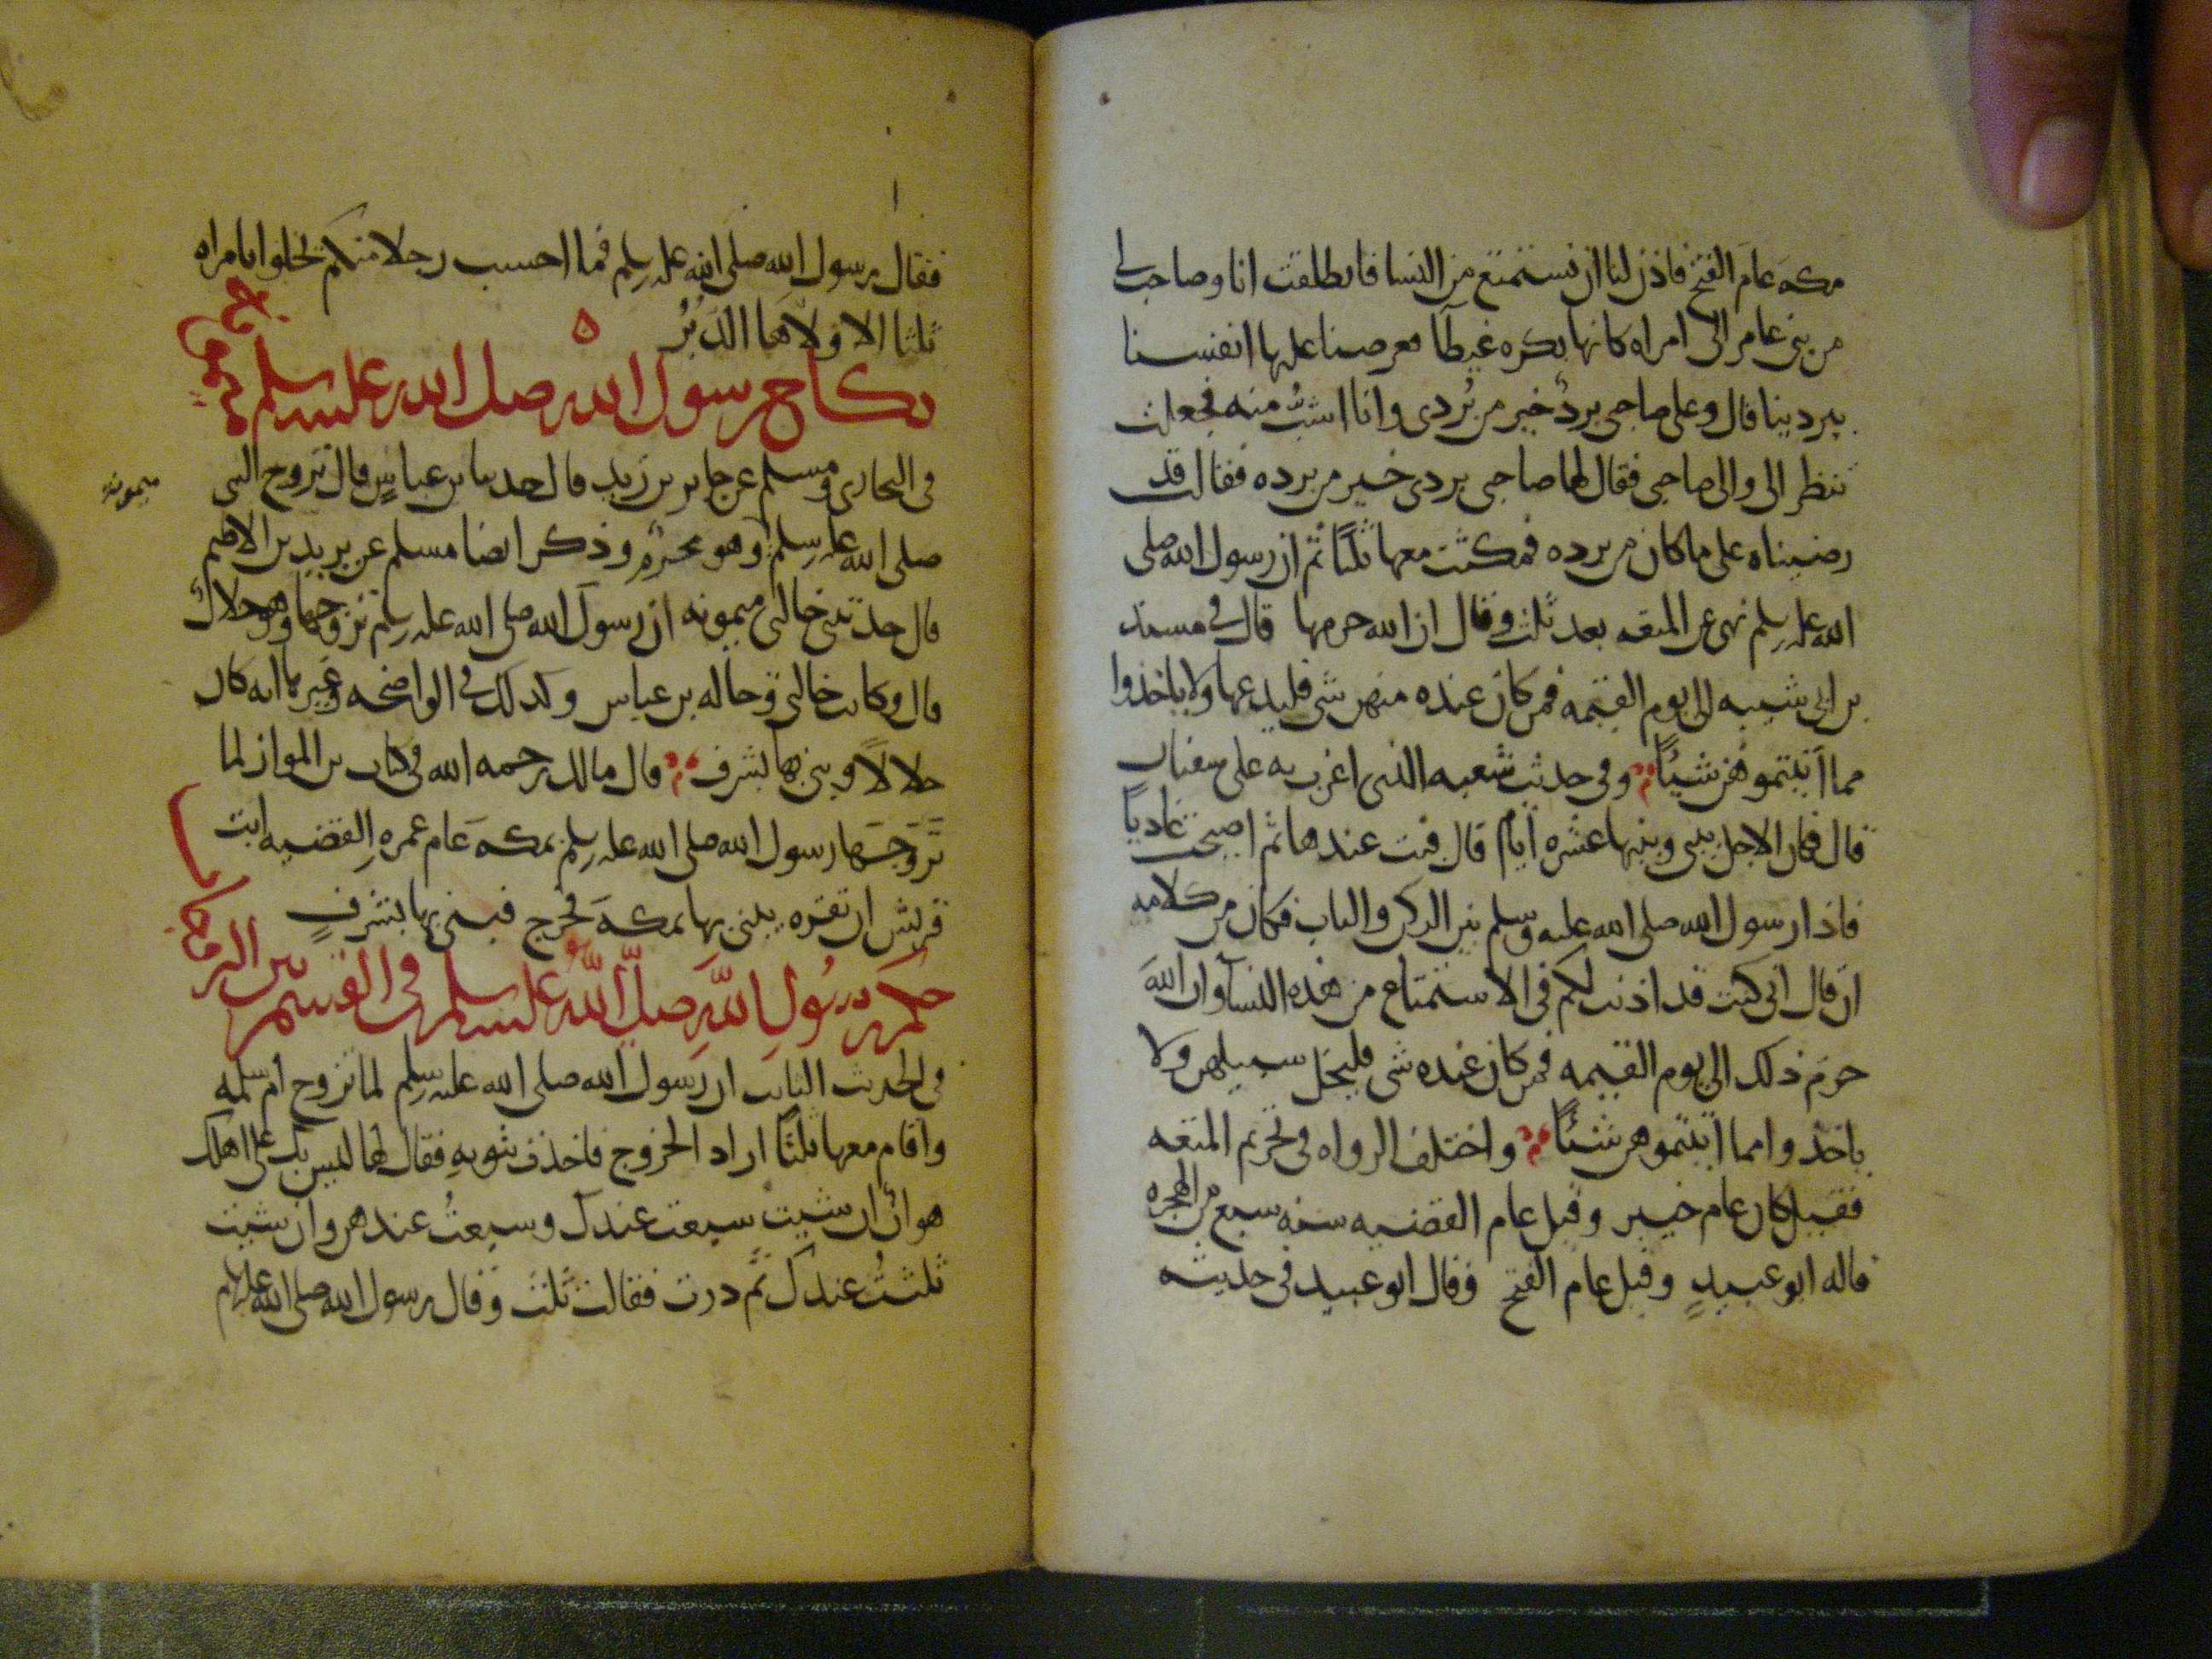 مكه عام الفتح فاذن لنا ان نستمتع من النسا فانطلقت انا وصاحب لى
من بنى عامر الى امراه كانها بكره غيطآ فعرضنا عليها انفسنا
ببردينا قال وعلى صاحبى بردٌ خير من بُردى وانا اشبُّ منه فجعلت
تنظر الى والى صاحبى فقال لها صاحبى بردى خير من برده فقالت قد
رضيناه على ما كان من برده فمكثت معها ثلثًا ثم ان رسول الله صلى
الله عليه وسلم نهى عن المتعه بعد ثلث وقال ان الله حرمها قال فى مسند
بن ابى شيبه الى يوم القيمه فمن كان عنده منهن شى فليدعها ولا ياخذوا
مما اتيتموهن شيئًا وفى حديث شعبه الذى اغرب به على سفيان
قال فكان الاجل بينى وبينها عشره ايام قال فبت عندها ثم اصبحت غاديًا
فاذا رسول الله صلى الله عليه وسلم بين الركن والباب فكان من كلامه
ان قال انى كنت قد اذنت لكم فى الاستمتاع من هذه النسآ وان الله
حرم ذلك الى يوم القيمه فمن كان عنده شى فليخل سبيلهن ولا
ياخذوا مما اتيتموهن شيئًا واختلف الرواه فى تحريم المتعه
فقيل كان عام خيبر وقيل عام القضيه سنه سبع من الهجره
قاله ابو عبيدٍ وقيل عام الفتح وقال ابو عبيد فى حديثه
فقال رسول الله صلى الله عليه وسلم فما احسب رجلا منكم تخلوا بامراه
ثلثا الا ولاها الدُبُر
نكاح رسول الله صلى الله عليه وسلم
فى البخارى ومسلم عن جابر بن زيد قال حدثنا بن عباسٍ قال تزوج النبى
ميمونه
صلى الله عليه وسلم وهو محرمٌ وذكر ايضا مسلم عن يزيد بن الاصم
قال حدثتنى خالتى ميمونه ان رسول الله صلى الله عليه وسلم تزوجها وهو حلالٌ
قال وكانت خالتى وخاله بن عباس وكذلك فى الواضحه وغيرها انه كان
حلالاً وبنى بها بشرف قال مالك رحمه الله فى كتاب بن المواز لما
تَزَوَّجَهَا رسول الله صلى الله عليه وسلم بمكه عام عمره القضيه ابت
قريش ان تقره يبنى بها بمكه فخرج فبنى بها بشرفٍ
حكم رسول الله صلى الله عليه وسلم فى القسم بين
فى الحديث الثابت ان رسول الله صلى الله عليه وسلم لما تزوج ام سلمه
واقام معها ثلثًا اراد الخروج فاخذت بثوبه فقال لها ليس بك على اهلك
هوان ان شيت سبعت عندك وسبعتُ عندهن وان شيت
ثلثتُ عندك ثم درت فقالت ثلث وقال رسول الله صلى الله عليه وسلم